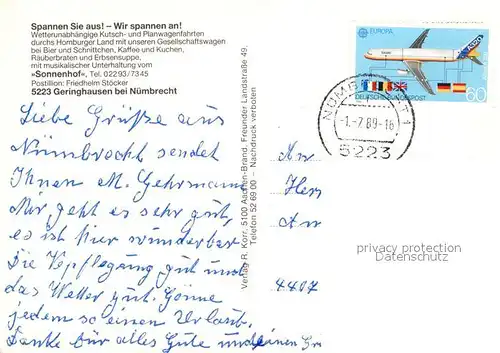 Spannen Sie aus! – Wir spannen an!
Wetterunabhängige Kutsch- und Planwagenfahrten
durchs Homburger Land mit unseren Gesellschaftswagen
bei Bier und Schnittchen, Kaffee und Kuchen,
Räuberbraten und Erbsensuppe.
mit musikalischer Unterhaltung vom
»Sonnenhof«, Tel. 02293/7345
Postillion: Friedhelm Stöcker
5223 Geringhausen bei Nümbrecht
Liebe Grüße aus
Nümbrecht sendet
Ihnen M. Gehrmann
Mir geht es sehr gut,
es ist hier wunderbar
Die Verpflegung gut und
das Wetter gut. Gönne
jedem so einen Urlaub.
Danke für alles Gute und
Verlag R. Korr, 5100 Aachen-Brand, Freunder Landstraße 49,
Telefon 52 69 00 – Nachdruck verboten
EUROPA
DEUTSCHE BUNDESPOST
60
NÜMB 1
-1.-7.89-16
5223
An
Herr
An
4407
privacy protection
Datenschutz